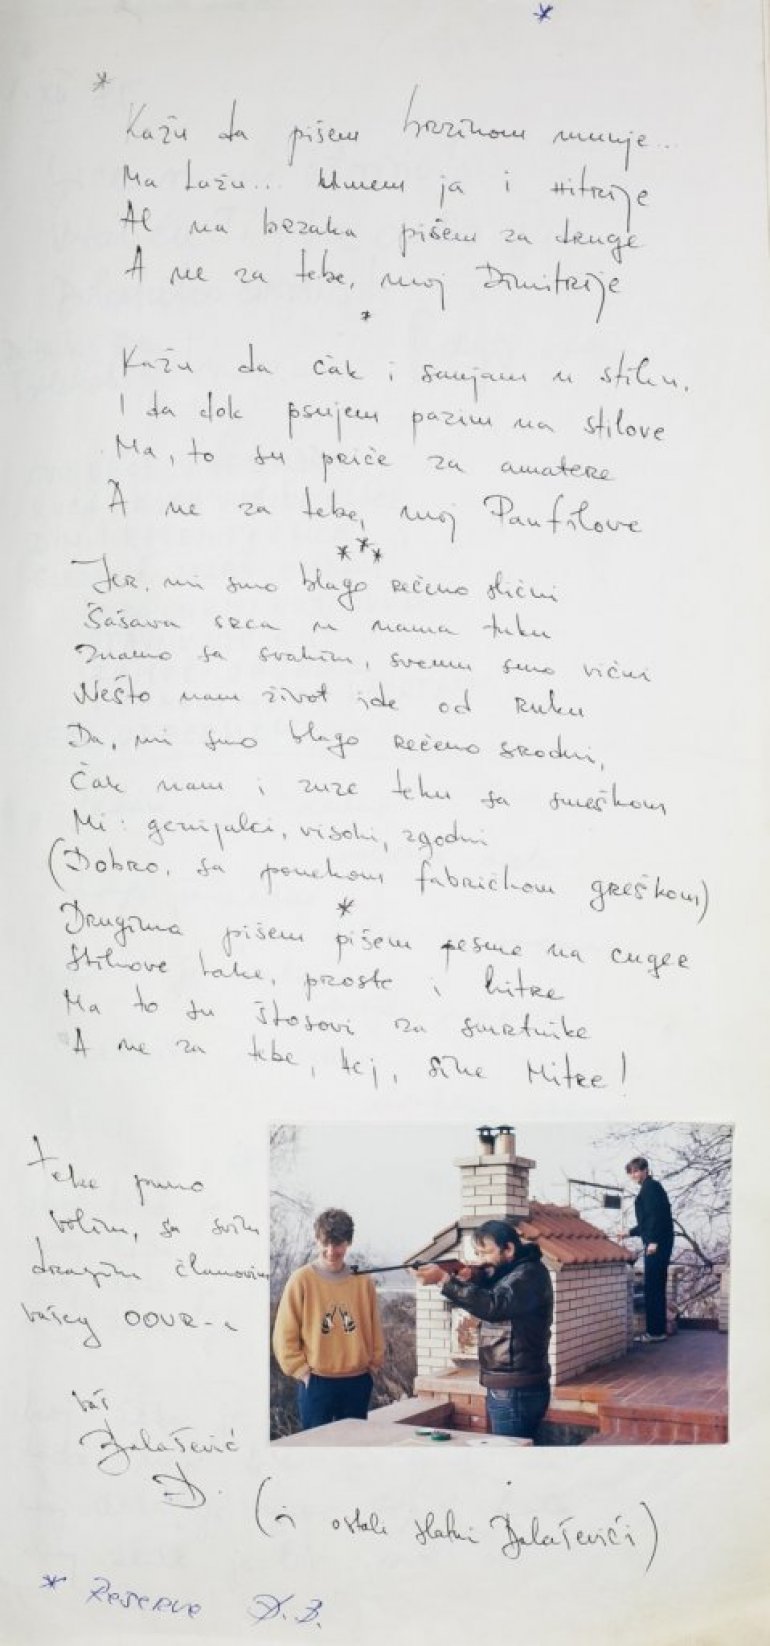 *
*
Kažu da pišem brzinom munje...
Ma lažu... Umem ja i hitrije
Al na brzaka pišem za druge
A ne za tebe, moj Dimitrije
*
Kažu da čak i sanjam u stihu,
I da dok psujem pazim na stilove
Ma, to su priče za amatere
A ne za tebe, moj Panfilove
***
Jer, mi smo blago rečeno slični
Šašava srca u nama tuku
Znamo sa svakim, svemu smo vični
Nešto nam život ide od ruku
Da, mi smo blago rečeno srodni,
Čak nam i suze teku sa smeškom
Mi: genijalci, visoki, zgodni
(Dobro, sa ponekom fabričkom greškom)
*
Drugima pišem pišem pesme na cuger
Stihove lake, proste i hitre
Ma to su štosovi za smrtnike
A ne za tebe, hej, sine Mitre!
puno
volim, sa svim
dragim članovima
vašeg OOUR-a
vaš
Balašević
Đ.
(i ostali slatki Balaševići)
* Reserve Đ.B.